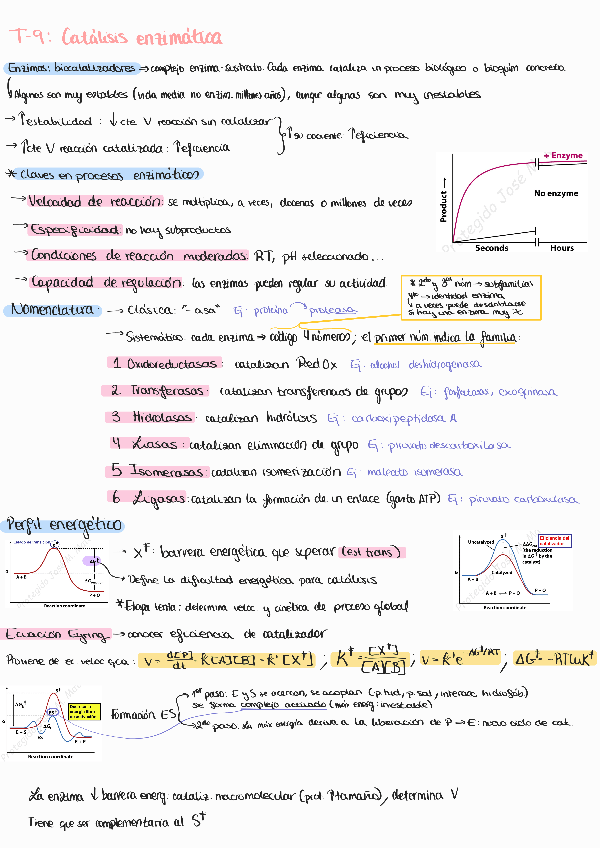 T-9: Catálisis enzimática
Enzimas: biocatalizadores → complejo enzima-sustrato. Cada enzima cataliza un proceso biológico o bioquím concreto.
Algunas son muy estables (vida media no enzim. millones años), aunque algunas son muy inestables
→ ↑estabilidad : ↓ cte V reacción sin catalizar
→ ↑cte V reacción catalizada: ↑eficiencia
↑su cociente ↑eficiencia
* Claves en procesos enzimáticos
→ Velocidad de reacción: se multiplica, a veces, docenas o millones de veces
→ Especificidad: no hay subproductos
→ Condiciones de reacción moderadas: RT, pH seleccionado...
→ Capacidad de regulación. las enzimas pueden regular su actividad
Product →
+ Enzyme
No enzyme
Seconds
Hours
* 2do y 3er núm → subfamilias
4to → identidad enzima
Nomenclatura: → Clásica: "-asa" Ej: proteína proteasa
→ Sistemática: cada enzima → código 4 números; el primer núm indica la familia:
1 Oxidoreductasas: catalizan RedOx Ej: alcohol deshidrogenasa
2. Transferasas: catalizan transferencias de grupos Ej: fosfatasas,
3 Hidrolasas: catalizan hidrólisis Ej: carboxipeptidasa A
4 Liasas: catalizan eliminación de grupo Ej: piruvato descarboxilasa
5 Isomerasas: catalizan isomerización Ej: maleato isomerasa
6 Ligasas: catalizan la formación de un enlace (gasto ATP) Ej: piruvato carboxilasa
Perfil energético
· X‡: barrera energética que superar (est trans)
→ Define la dificultad energética para catálisis
* Etapa lenta: determina veloc y cinética de proceso global
A + B
P + Q
Reaction coordinate
Uncatalyzed
Catalyzed
(the reduction in ΔG‡ by the catalyst)
Eficiencia del catalizador
A + B
A + B → P + Q
P + Q
Reaction coordinate
Ecuación Eyring → conocer eficiencia de catalizador
Proviene de ec veloc qca: V = d[P]/dt = K[A][B] = K'[X‡] ; K‡ = [X‡]/[A][B] ; V = K'e^-ΔG‡/RT ; ΔG‡ = -RTLnK‡
E + S
ES
P + E
Reaction coordinate
Formación ES
→ 1er paso: E y S se acercan, se acoplan (p. hid, p. sal, interacc. hidrofób)
se forma complejo activado (máx energ: inestable)
→ 2do paso: La máx energía deriva a la liberación de P → E: nuevo ciclo de cat.
La enzima ↓ barrera energ. cataliz. macromolecular (prot. ↑tamaño), determina V
Tiene que ser complementaria al S‡